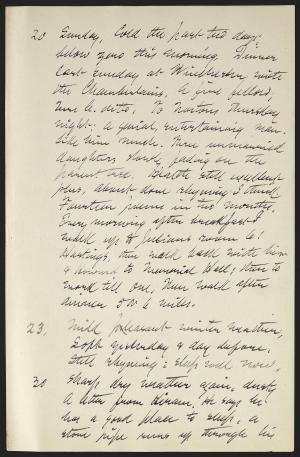 20 Sunday, Cold the past two days;
below zero this morning. Dinner
last Sunday at Winchester, with
the Chamberlains. A fine fellow,
Mrs C. ditto. To Nortons Thursday
night: a genial, entertaining man.
Like him much. Three unmarried
daughters slowly fading on the
parent tree. Health still excellent
plus, about done rhyming I think.
Fourteen poems in two months.
Every morning after breakfast I
walk up to Julians room 61
Hastings, then walk back with him
& around to Memorial Hall; then to
work till one, then walk after
dinner 5 or 6 miles.
23, Mild pleasant winter weather,
50° yesterday & day before.
Still rhyming: sleep well now.
30 Sharp dry weather again, dusty
A letter from Hiram. He says he
has a good place to sleep, a
stove pipe runs up through his